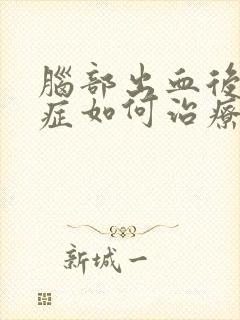 腦部出血後
症如何治療
新城一